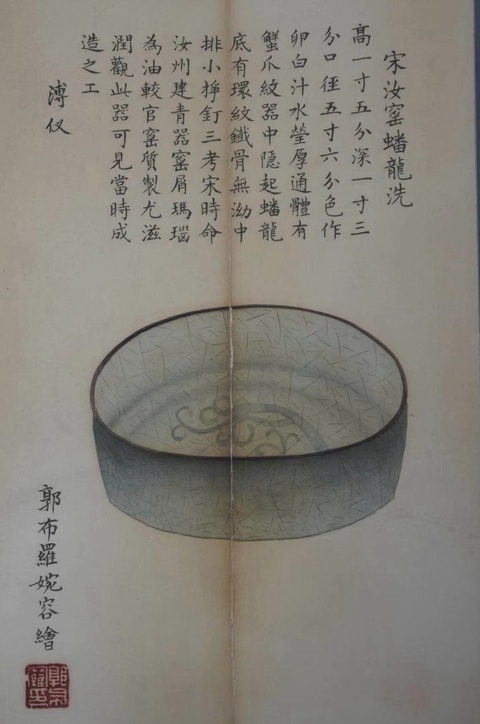 宋汝窰蟠龍洗
高一寸五分深一寸三
分口徑五寸六分色作
卵白汁水瑩厚通體有
蟹爪紋器中隱起蟠龍
底有環紋鐵骨無泑中
排小掙釘三考宋時命
汝州建青器窰屑瑪瑙
為油較官窰質製尤滋
潤觀此器可見當時成
造之工
溥仪
郭布羅婉容繪